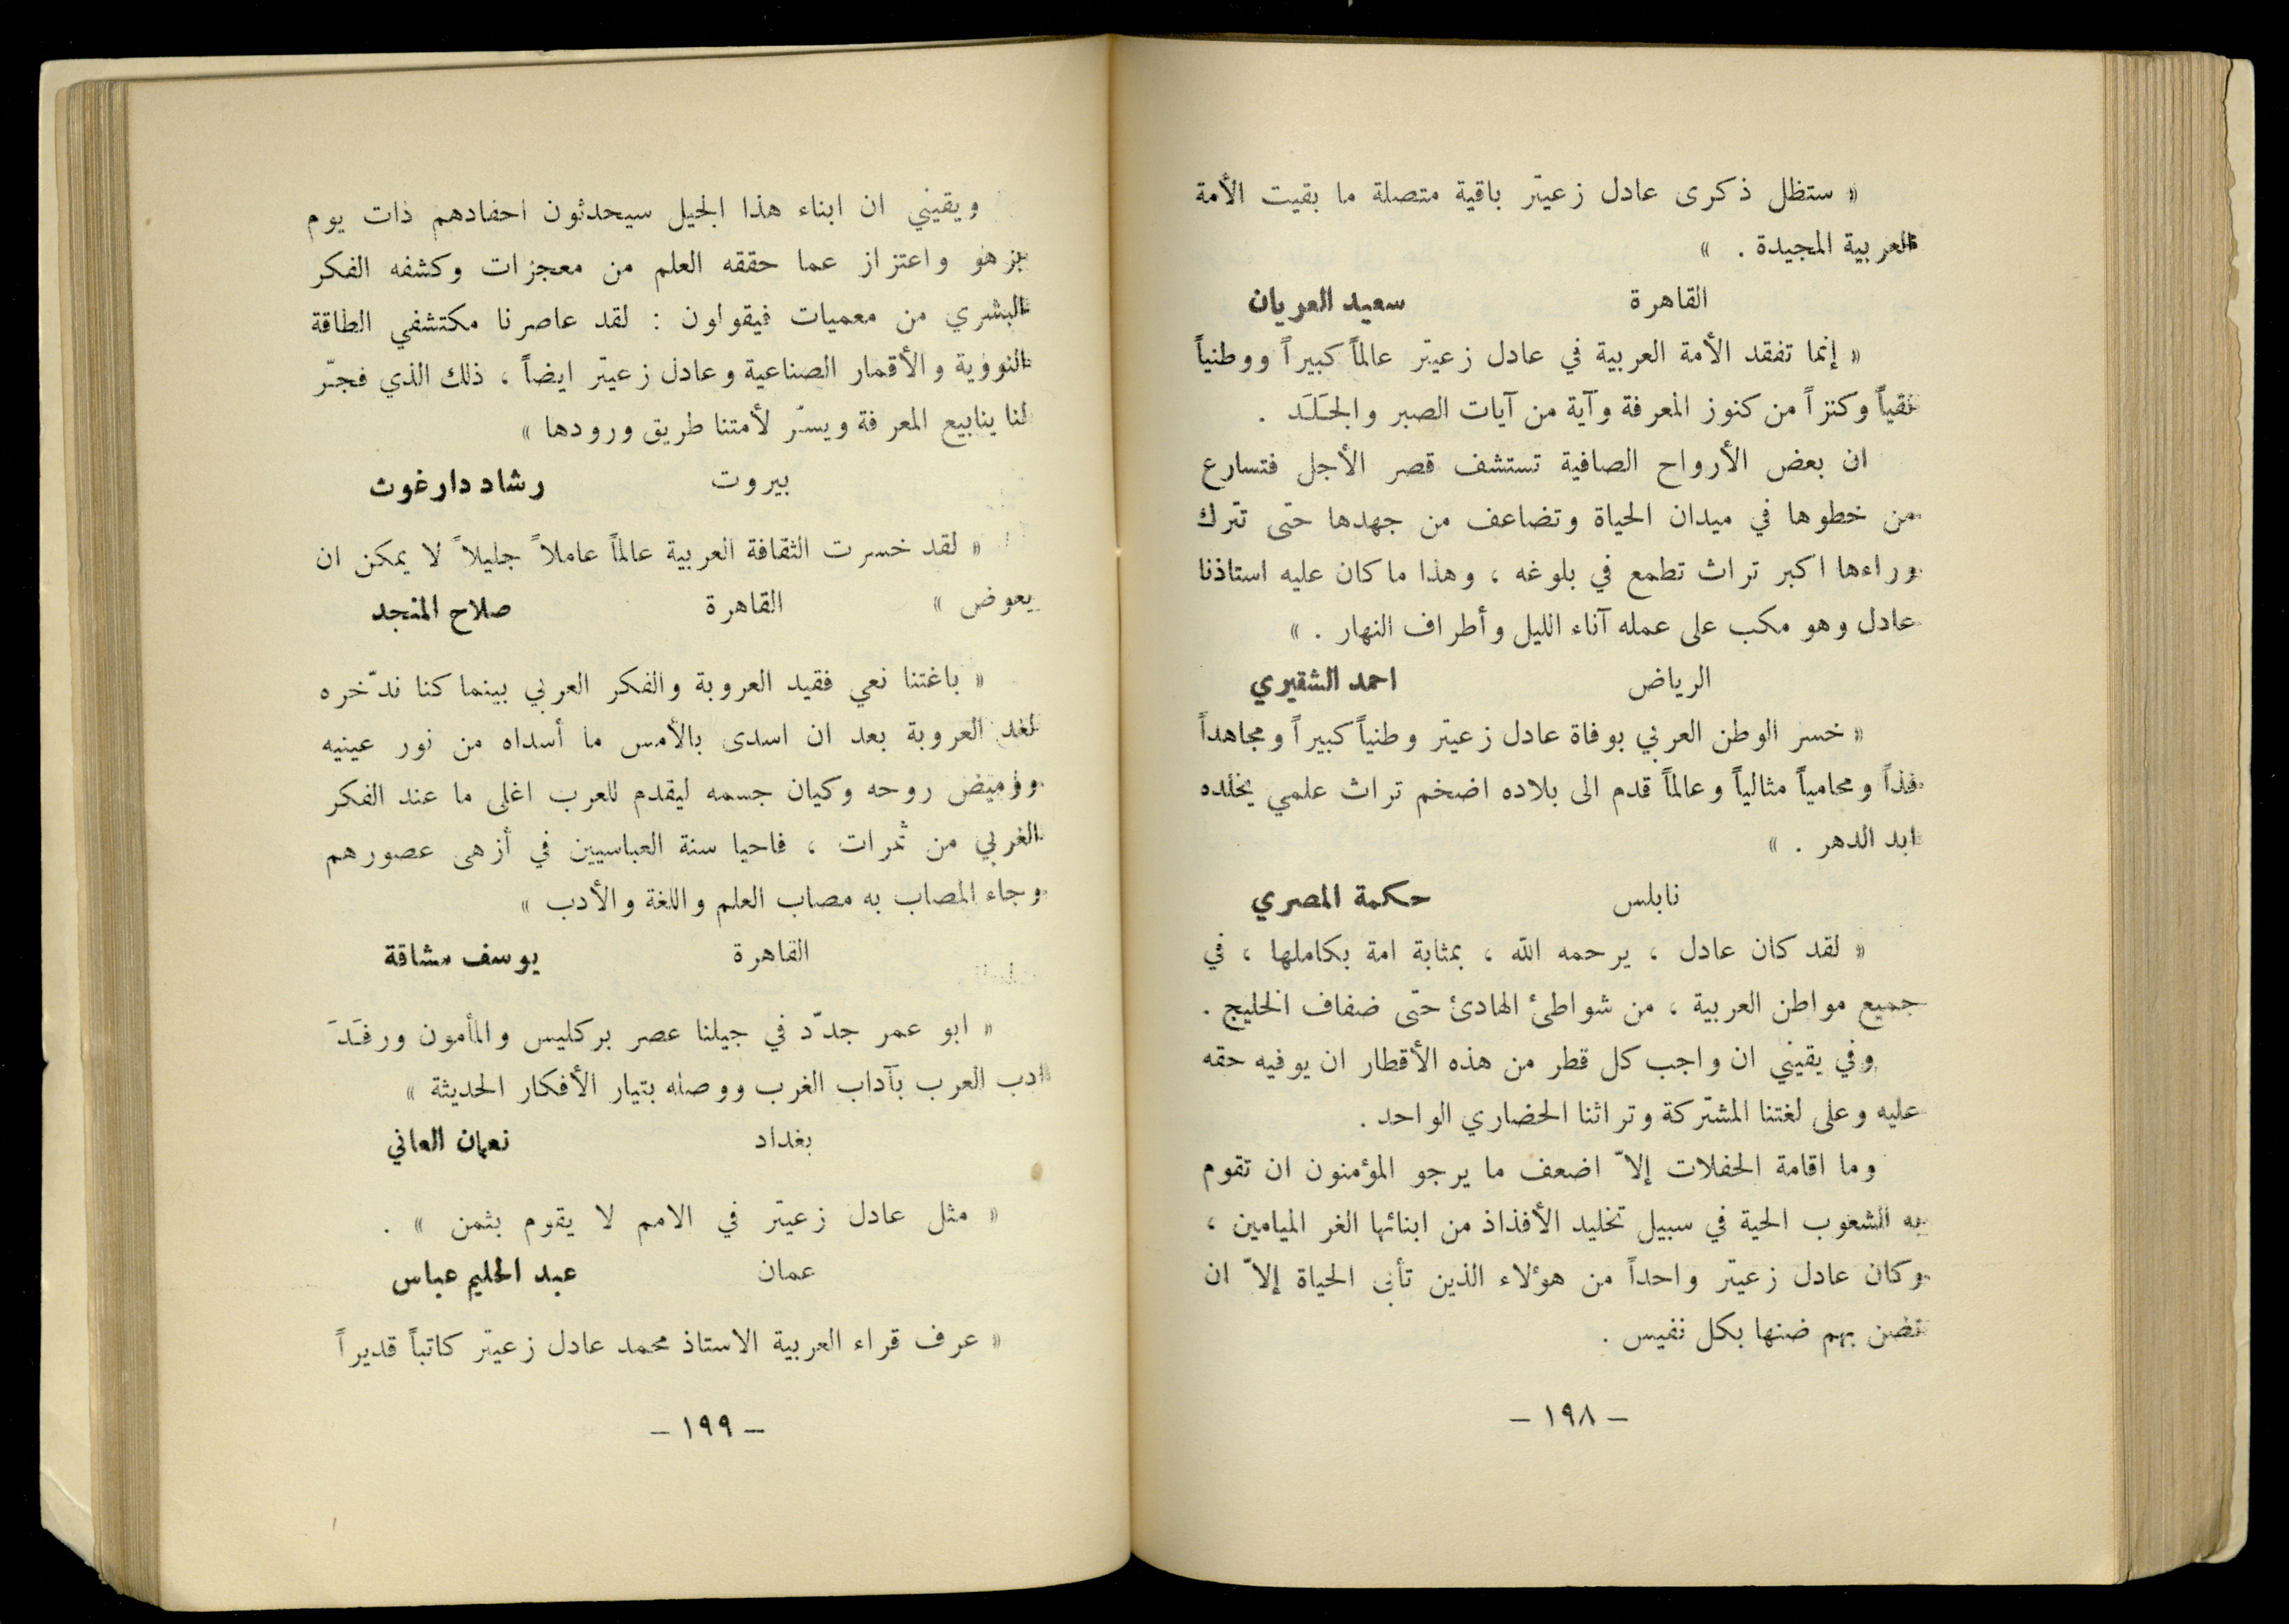 « ستظل ذكرى عادل زعيتر باقية متصلة ما بقيت الأمة
العربية المجيدة . »
القاهرة سعيد العريان
« إنما تفقد الأمة العربية في عادل زعيتر عالماً كبيراً ووطنياً
نقياً وكنزاً من كنوز المعرفة وآية من آيات الصبر والجَلَد .
ان بعض الأرواح الصافية تستشف قصر الأجل فتسارع
من خطوها في ميدان الحياة وتضاعف من جهدها حتى تترك
وراءها اكبر تراث تطمع في بلوغه ، وهذا ما كان عليه استاذنا
عادل وهو مكب على عمله آناء الليل وأطراف النهار . »
الرياض احمد الشقيري
« خسر الوطن العربي بوفاة عادل زعيتر وطنياً كبيراً ومجاهداً
فذاً ومحامياً مثالياً وعالماً قدم الى بلاده اضخم تراث علمي يخلده
ابد الدهر . »
نابلس حكمة المصري
« لقد كان عادل ، يرحمه الله ، بمثابة امة بكاملها ، في
جميع مواطن العربية ، من شواطئ الهادئ حتى ضفاف الخليج .
وفي يقيني ان واجب كل قطر من هذه الأقطار ان يوفيه حقه
عليه وعلى لغتنا المشتركة وتراثنا الحضاري الواحد .
وما اقامة الحفلات إلاّ اضعف ما يرجو المؤمنون ان تقوم
به الشعوب الحية في سبيل تخليد الأفذاذ من ابنائها الغر الميامين ،
وكان عادل زعيتر واحداً من هؤلاء الذين تأبى الحياة إلاّ ان
تضن بهم ضنها بكل نفيس .
– ١٩٨ –
ويقيني ان ابناء هذا الجيل سيحدثون احفادهم ذات يوم
بزهو واعتزاز عما حققه العلم من معجزات وكشفه الفكر
البشري من معميات فيقولون : لقد عاصرنا مكتشفي الطاقة
النووية والأقمار الصناعية وعادل زعيتر ايضاً ، ذلك الذي فجّر
لنا ينابيع المعرفة ويسّر لأمتنا طريق ورودها »
بيروت رشاد دارغوث
« لقد خسرت الثقافة العربية عالماً عاملاً جليلاً لا يمكن ان
يعوض » القاهرة صلاح المنجد
« باغتنا نعي فقيد العروبة والفكر العربي بينما كنا ندّخره
لغد العروبة بعد ان اسدى بالأمس ما أسداه من نور عينيه
ووميض روحه وكيان جسمه ليقدم للعرب اغلى ما عند الفكر
الغربي من ثمرات ، فاحيا سنة العباسيين في أزهى عصورهم
وجاء المصاب به مصاب العلم واللغة والأدب »
القاهرة يوسف مشاقة
« ابو عمر جدّد في جيلنا عصر بركليس والمأمون ورفَدَ
ادب العرب بآداب الغرب ووصله بتيار الأفكار الحديثة »
بغداد نعمان العاني
« مثل عادل زعيتر في الامم لا يقوم بثمن » .
عمان عبد الحليم عباس
« عرف قراء العربية الاستاذ محمد عادل زعيتر كاتباً قديراً
– ١٩٩ –